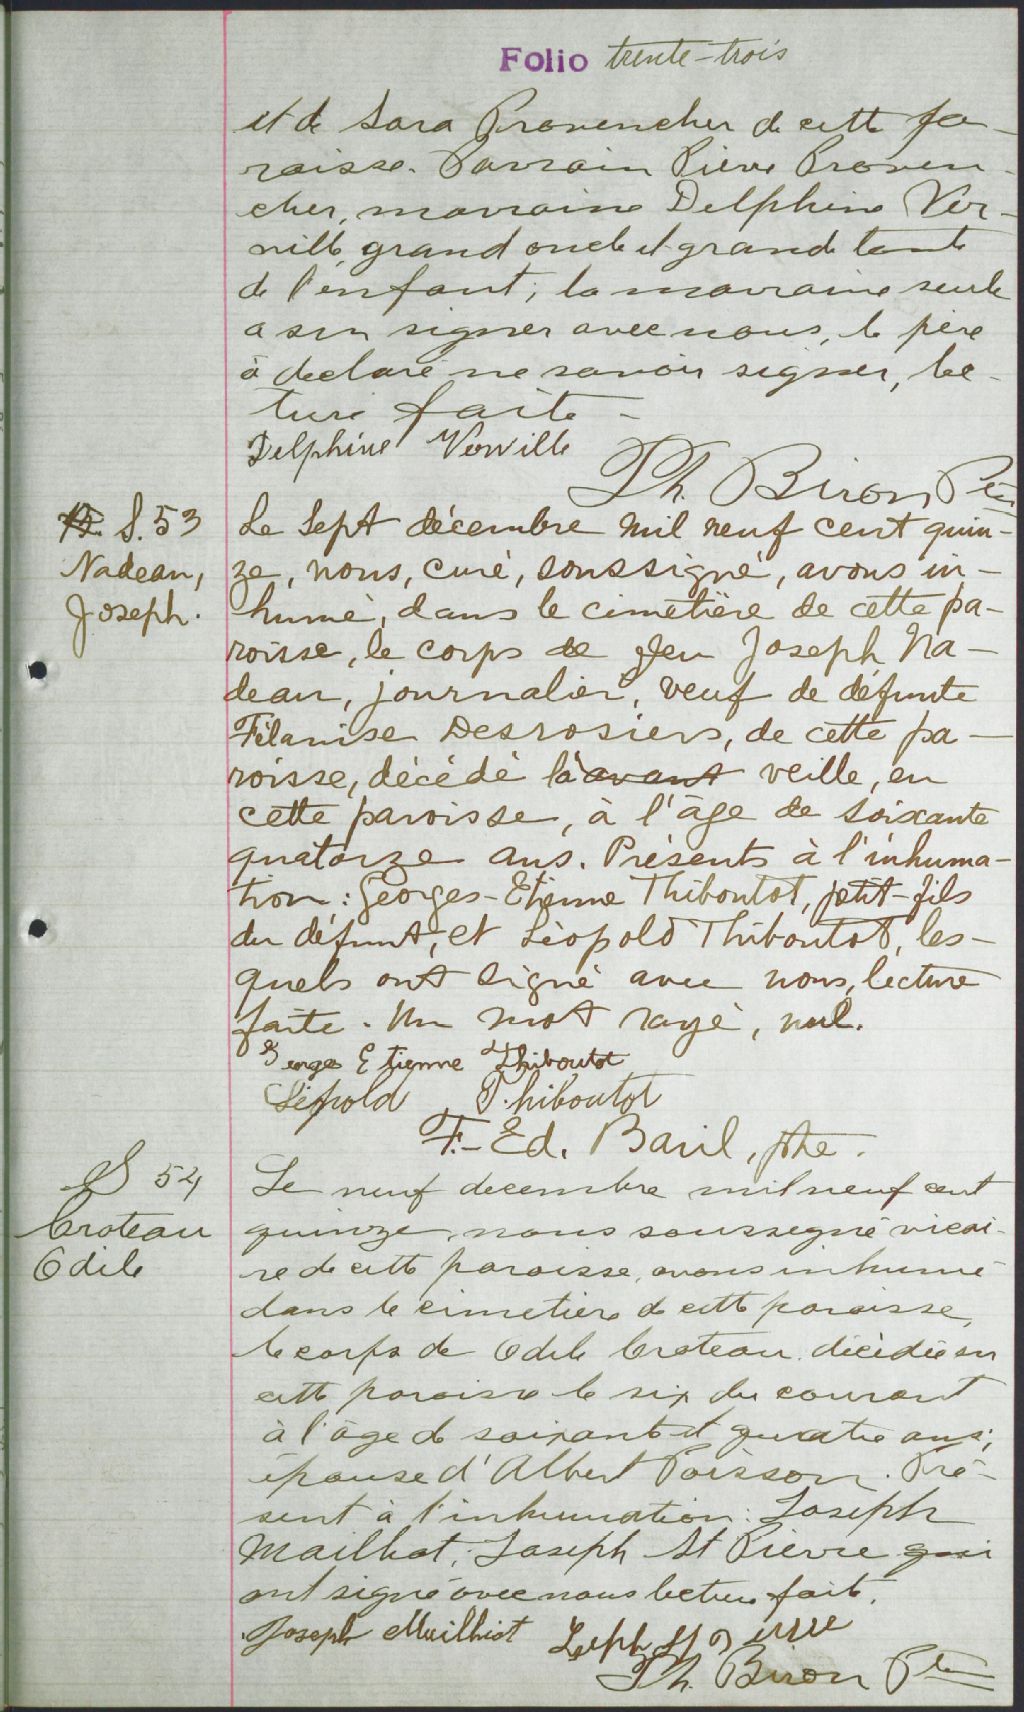 Folio trente-trois
et de Sara Provencher de cette pa-
roisse. Parrain Pierre Proven-
cher, marraine Delphine Ver-
ville, grand oncle et grande tante
de l'enfant; la marraine seule
a su signer avec nous, le père
à declaré ne savoir signer, lec-
ture faite -
Delphine Verville
Th. Biron Ptre
S. 53
Nadeau,
Joseph.
Le sept décembre mil neuf cent quin-
ze, nous, curé, soussigné, avons in-
humé, dans le cimetière de cette pa-
roisse, le corps de feu Joseph Na-
deau, journalier, veuf de défunte
Filanise Desrosiers, de cette pa-
roisse, décédé la avant veille, en
cette paroisse, à l'âge de soixante
quatorze ans. Présents à l'inhuma-
tion: Georges-Etienne Thiboutot, petit-fils
du défunt, et Léopold Thiboutot, les-
quels ont signé avec nous, lecture
faite. Un mot rayé, nul.
Georges Etienne Thiboutot
Léopold Thiboutot
F.-Ed. Baril, ptre.
S 54
Croteau
Odile
Le neuf decembre mil neuf cent
quinze, nous soussigné vicai-
re de cette paroisse, avons inhumé
dans le cimetière de cette paroisse,
le corps de Odile Croteau décédée en
cette paroisse le six du courant
à l'âge de soixante et quatre ans;
épouse d'Albert Poisson. Pré-
sent à l'inhumation: Joseph
Mailhot; Joseph St Pierre qui
ont signé avec nous lecture faite.
Joseph Mailhiot Joseph St Pierre
Th. Biron Ptre